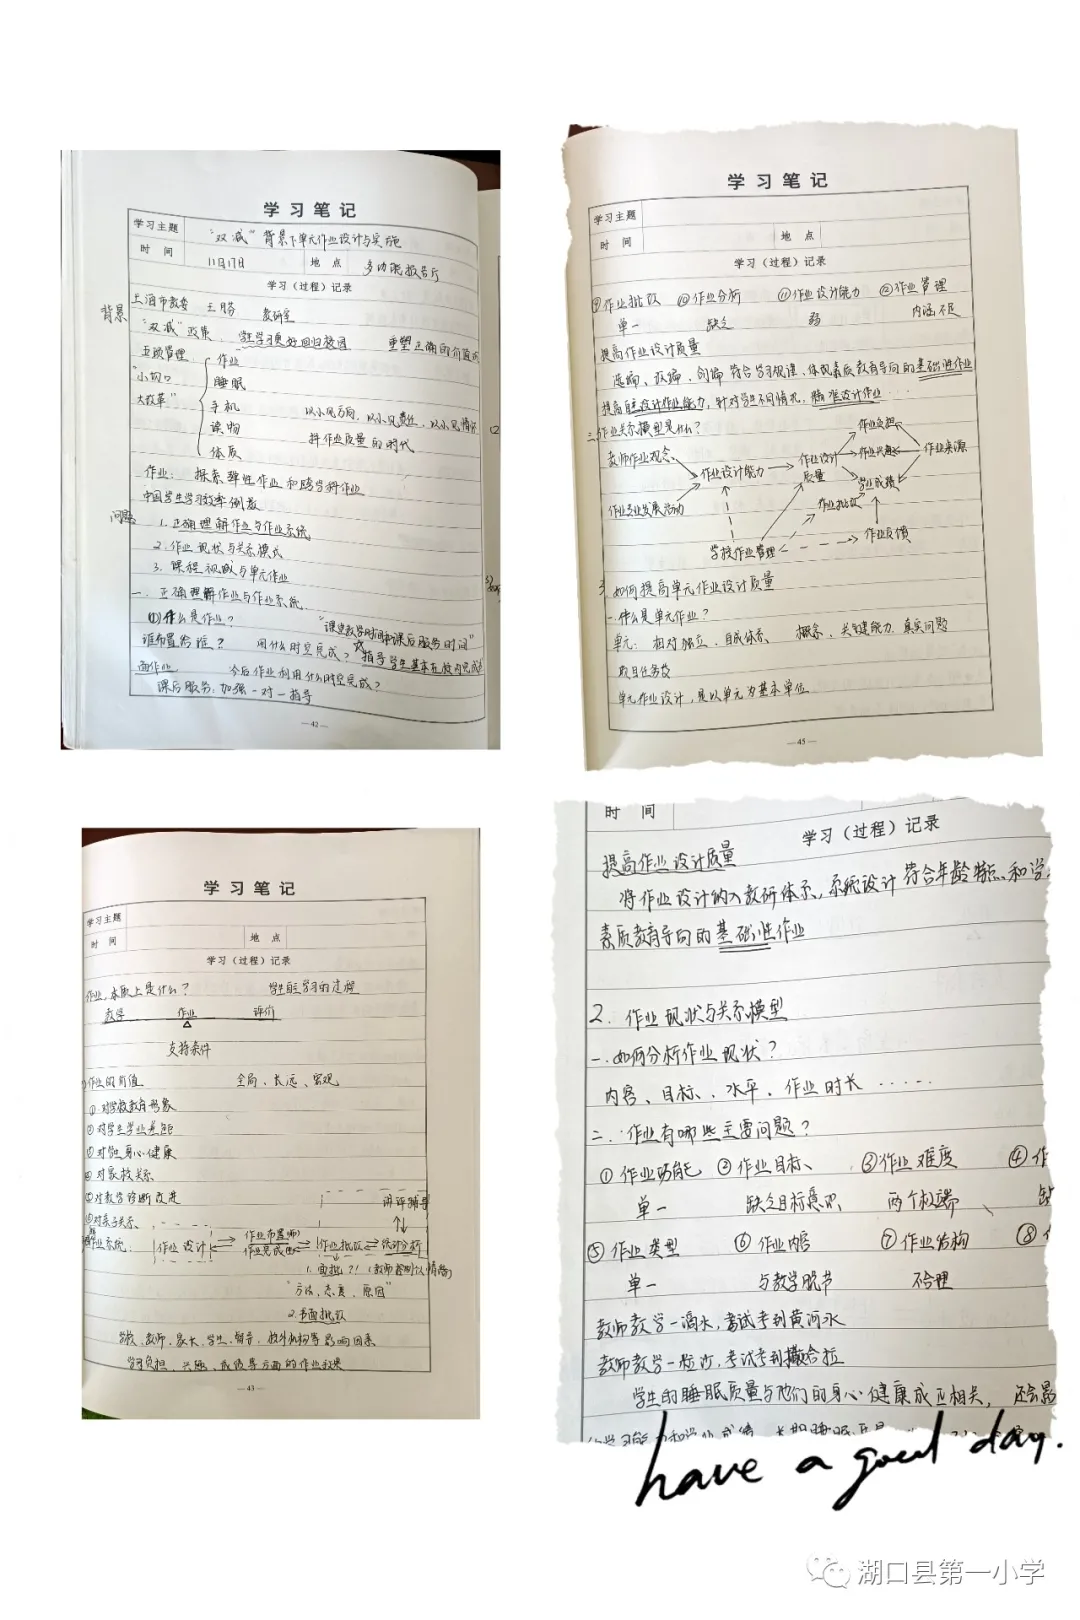 学习笔记
学习主题
"双减"背景下单元作业设计与实施
时 间 11月17日 地 点 多功能报告厅
学习（过程）记录
背景
上海市教委 王月芬 教研室
"双减"政策. 学生学习更好回归校园 重塑正确的价值观
五项管理 作业
"小切口 睡眠
大改革" 手机 以小见方向, 以小见责任, 以小见情怀
读物 作业质量的时代
体质
作业: 探索弹性作业和跨学科作业
中国学生学习效率倒数
问题
1. 正确理解作业与作业系统
2. 作业现状与关系模式
3. 课程视域与单元作业
一. 正确理解作业与作业系统
(1) 什么是作业? "课堂教学时间和课后服务时间"
谁布置给谁? 用什么时空完成? 指导学生基本在校内完成书
面作业 今后作业利用什么时空完成?
课后服务: 加强一对一指导
—42—
学习笔记
学习主题
时 间 地 点
学习（过程）记录
⑨作业批改 ⑩作业分析 ⑪作业设计能力 ⑫作业管理
单一 缺乏 弱 内涵不足
提高作业设计质量
选编、改编、创编 符合学习规律、体现素质教育导向的基础性作业
提高自主设计作业能力, 针对学生不同情况, 精准设计作业...
三.作业关系模型是什么?
教师作业观念 作业设计能力 作业设计质量 作业负担
作业兴趣 作业来源
学业成绩
作业专业发展活动 作业批改
学校作业管理 作业反馈
3. 如何提高单元作业设计质量
一.什么是单元作业?
单元: 相对独立、自成体系、 概念、关键能力、真实问题
项目任务
单元作业设计, 是以单元为基本单位
—45—
学习笔记
学习主题
时 间 地 点
学习（过程）记录
作业, 本质上是什么? 学生自主学习的过程
教学 作业 评价
支持条件
作业的价值 全局、长远、宏观
①对学校教育形象
②对学生学业差距
③对 身心健康
④对家校关系
⑤对教学诊断改进
⑥对亲子关系
讲评辅导
作业系统: 作业设计 作业布置(师) 作业完成(生) 作业批改 统计分析
1. 面批?! (教师控制认情绪)
"方法, 态度, 原因"
2. 书面批改
学校、教师、家长、学生、辅导、校外机构等影响因素
学习负担、兴趣、成绩等方面的作业效果
—43—
时 间
学习（过程）记录
提高作业设计质量
将作业设计纳入教研体系, 系统设计符合年龄特点、和学
素质教育导向的基础性作业
2. 作业现状与关系模型
一.如何分析作业现状?
内容、目标、水平、作业时长 ......
二.作业有哪些主要问题?
①作业功能 ②作业目标、 ③作业难度 ④作
单一 缺乏目标意识 两个极端 缺
⑤作业类型 ⑥作业内容 ⑦作业结构 ⑧
单一 与教学脱节 不合理
教师教学一滴水, 考试考到黄河水
教师教学一粒沙, 考试考到撒哈拉
学生的睡眠质量与他们的身心健康成正相关, 还会
have a good day.
湖口县第一小学